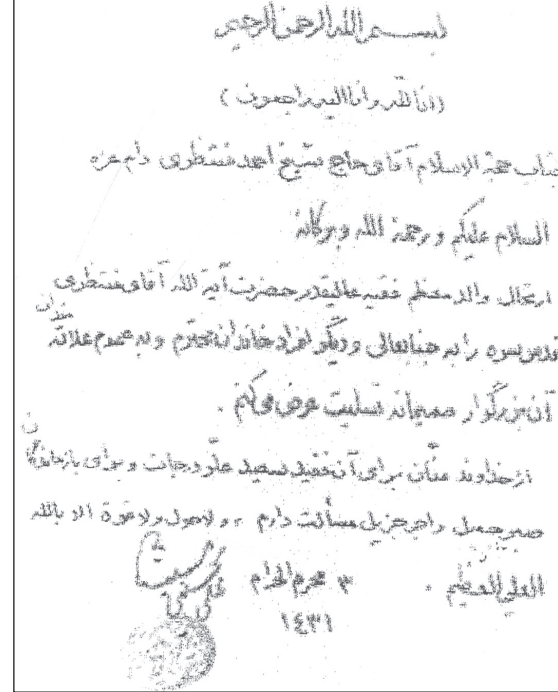 بسم الله الرحمن الرحیم
(انا لله و انا الیه راجعون)
جناب حجة الاسلام آقای حاج شیخ احمد منتظری دام عزه
السلام علیکم و رحمة الله و برکاته
ارتحال والد معظم فقیه عالیقدر حضرت آیة الله آقای منتظری
قدس سره را به جنابعالی و دیگر افراد خاندان محترم و به عموم علاقه مندان
آن بزرگوار صمیمانه تسلیت عرض میکنم .
از خداوند منّان برای آن فقید سعید علّو درجات و برای بازماندگان
صبر جمیل و اجر جزیل مسألت دارم . و لا حول و لا قوة الا بالله
العلی العظیم . ۳ محرم الحرام
۱٤۳۱